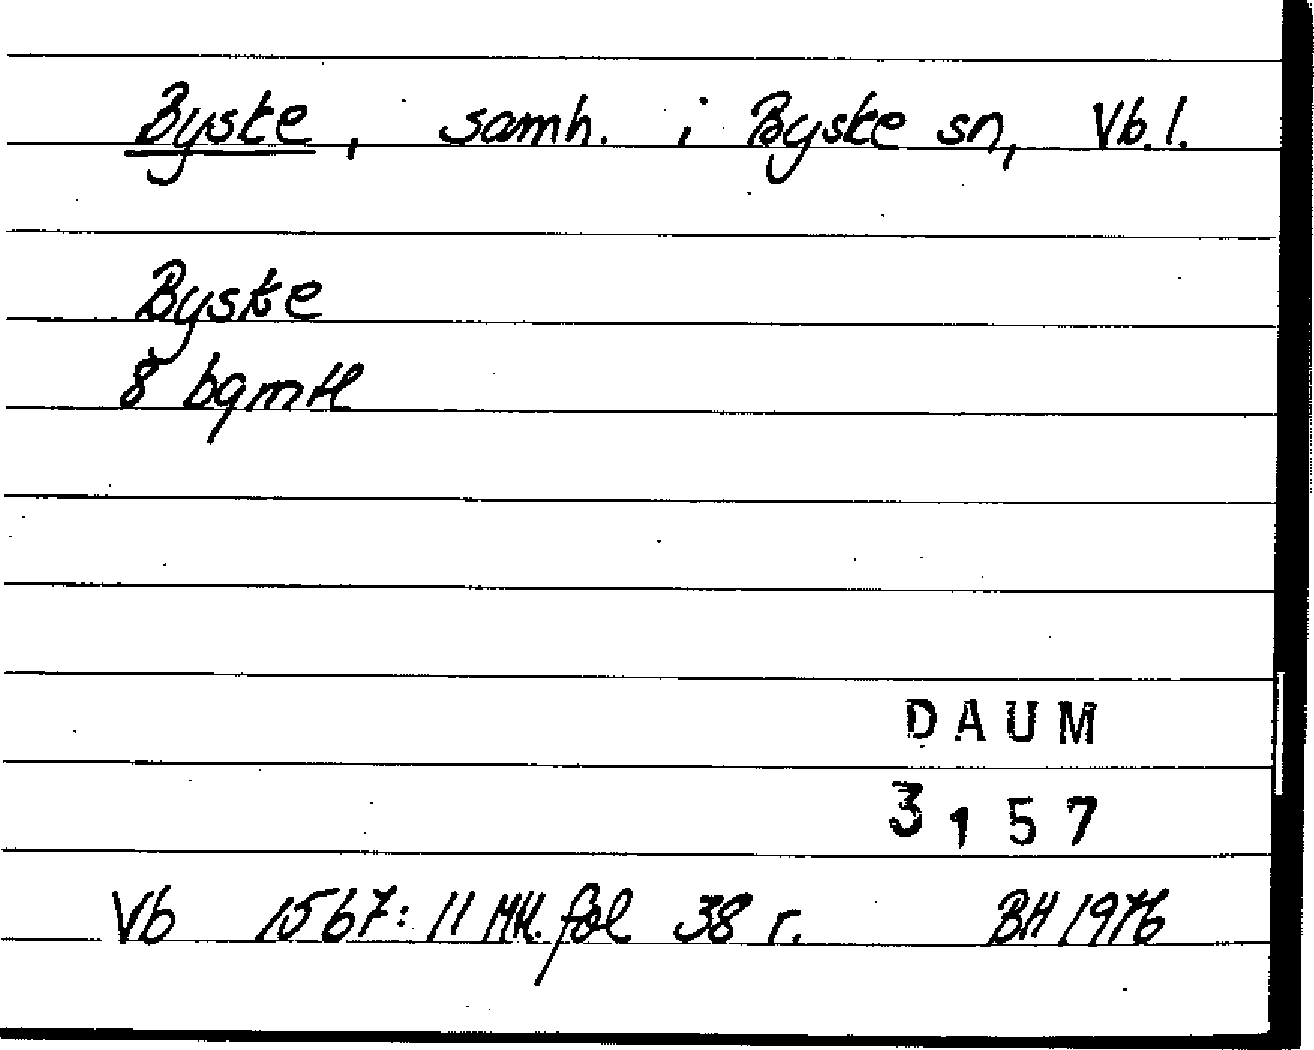 Byske, samh. i Byske sn, Vb.l.
Byske
8 bgmtl
DAUM
3157
Vb 1567:11 MH. fol 38 r. BH 1976